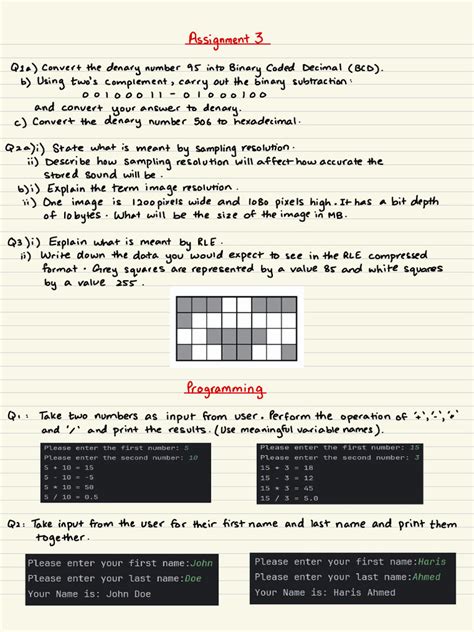 Assignment 3
Q1a) Convert the denary number 95 into Binary Coded Decimal (BCD).
b) Using two's complement, carry out the binary subtraction:
00100011 - 01000100
and convert your answer to denary.
c) Convert the denary number 506 to hexadecimal.
Q2a)i) State what is meant by sampling resolution.
ii) Describe how sampling resolution will affect how accurate the
stored sound will be.
b)i) Explain the term image resolution.
ii) One image is 1200pixels wide and 1080 pixels high. It has a bit depth
of 10bytes. What will be the size of the image in MB.
Q3)i) Explain what is meant by RLE.
ii) Write down the data you would expect to see in the RLE compressed
format. Grey squares are represented by a value 85 and white squares
by a value 255.
Programming
Q1: Take two numbers as input from user. Perform the operation of '+','-','*'
and '/' and print the results. (Use meaningful variable names).
Please enter the first number: 5
Please enter the second number: 10
5 + 10 = 15
5 - 10 = -5
5 * 10 = 50
5 / 10 = 0.5
Please enter the first number: 15
Please enter the second number: 3
15 + 3 = 18
15 - 3 = 12
15 * 3 = 45
15 / 3 = 5.0
Q2: Take input from the user for their first name and last name and print them
together.
Please enter your first name:John
Please enter your last name:Doe
Your Name is: John Doe
Please enter your first name:Haris
Please enter your last name:Ahmed
Your Name is: Haris Ahmed